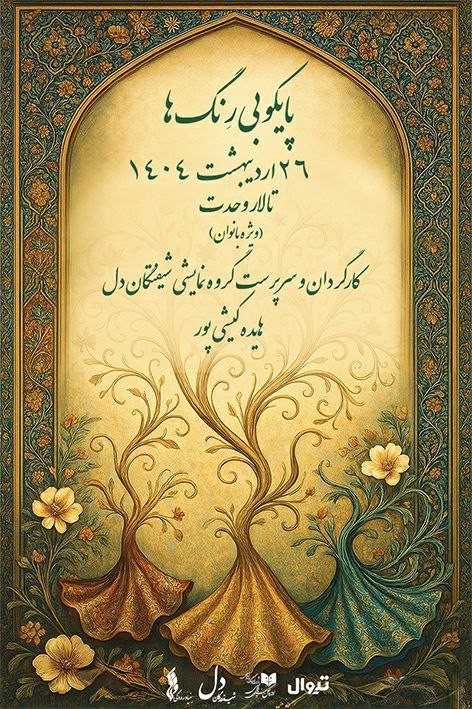 پایکوبی رِنگ ها
۲۶ اردیبهشت ۱۴۰۴
تالار وحدت
(ویژه بانوان)
کارگردان و سرپرست گروه نمایشی شیفتگان دل
هایده کیشی پور
دل
تیوال